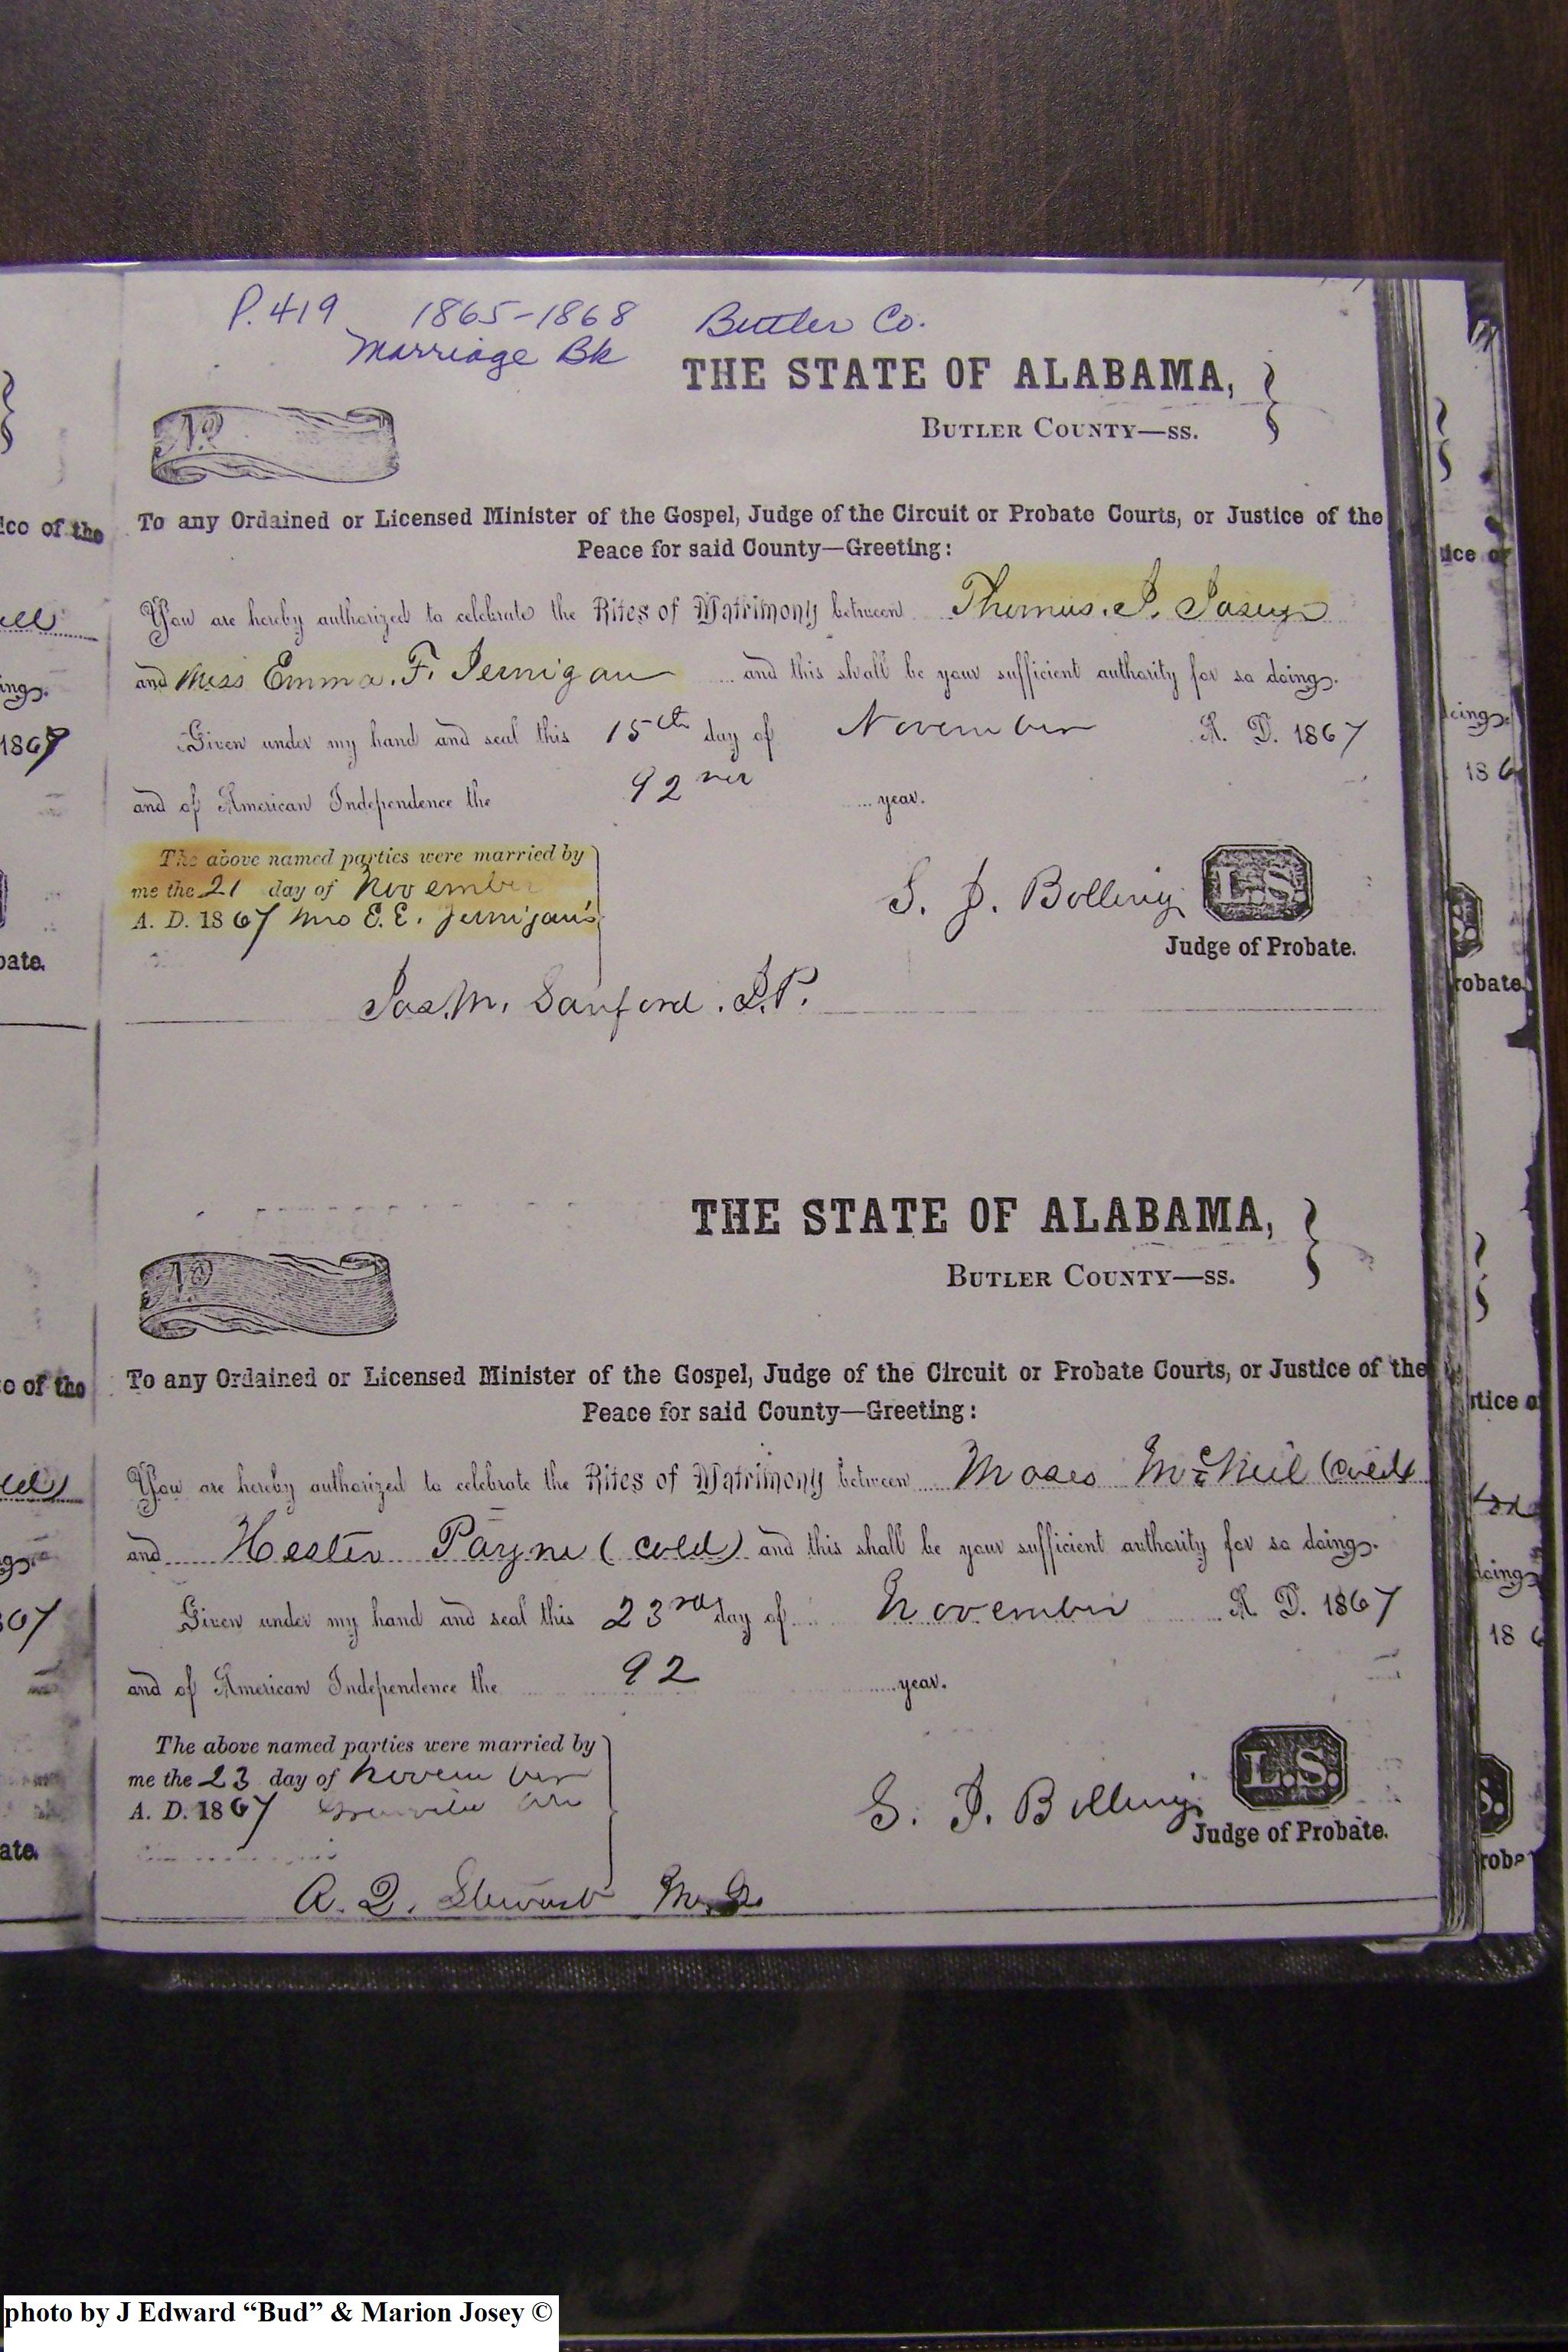 P. 419 1865-1868 Butler Co.
Marriage Bk
THE STATE OF ALABAMA,
BUTLER COUNTY—SS.
No
To any Ordained or Licensed Minister of the Gospel, Judge of the Circuit or Probate Courts, or Justice of the
Peace for said County—Greeting:
You are hereby authorized to celebrate the Rites of Matrimony between Thomas. J. Josey
and Miss Emma. F. Jernigan and this shall be your sufficient authority for so doing.
Given under my hand and seal this 15th day of November A. D. 1867
and of American Independence the 92 year.
The above named parties were married by
me the 21 day of November
A. D. 1867 Mrs E. E. Jernigan's
S. J. Bolling L.S.
Judge of Probate.
Jas. M. Sanford. J.P.
THE STATE OF ALABAMA,
BUTLER COUNTY—SS.
No
To any Ordained or Licensed Minister of the Gospel, Judge of the Circuit or Probate Courts, or Justice of the
Peace for said County—Greeting:
You are hereby authorized to celebrate the Rites of Matrimony between Moses McNeil (cold)
and Hester Payne (cold) and this shall be your sufficient authority for so doing.
Given under my hand and seal this 23rd day of November A. D. 1867
and of American Independence the 92 year.
The above named parties were married by
me the 23 day of November
A. D. 1867
S. J. Bolling L.S.
Judge of Probate.
A. Q. Stewart
photo by J Edward “Bud” & Marion Josey ©